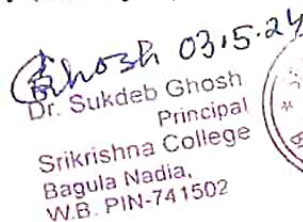 Ghosh 03.5.24
Dr. Sukdeb Ghosh
Principal
Srikrishna College
Bagula Nadia,
W.B. PIN-741502